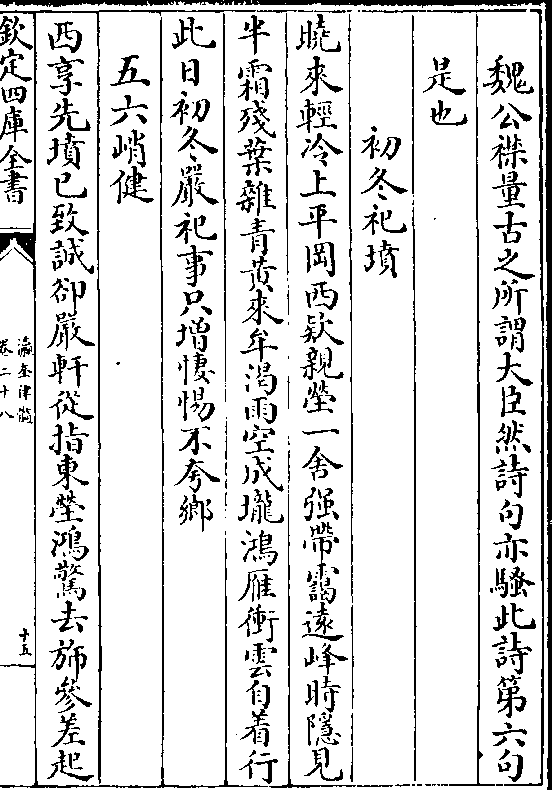 魏公襟量古之所謂大臣然詩句亦騷此詩第六句
是也
初冬祀墳
曉來輕冷上平岡西欵親塋一舍强帶靄遠峰時隱見
半霜殘葉雜青黄來牟渴雨空成壠鴻雁衝雲自着行
此日初冬嚴祀事只增悽惕不夸鄉
五六峭健
西享先墳已致誠卻嚴軒從指東塋鴻驚去斾參差起
欽定四庫全書
瀛奎律髓
卷二十八
十五